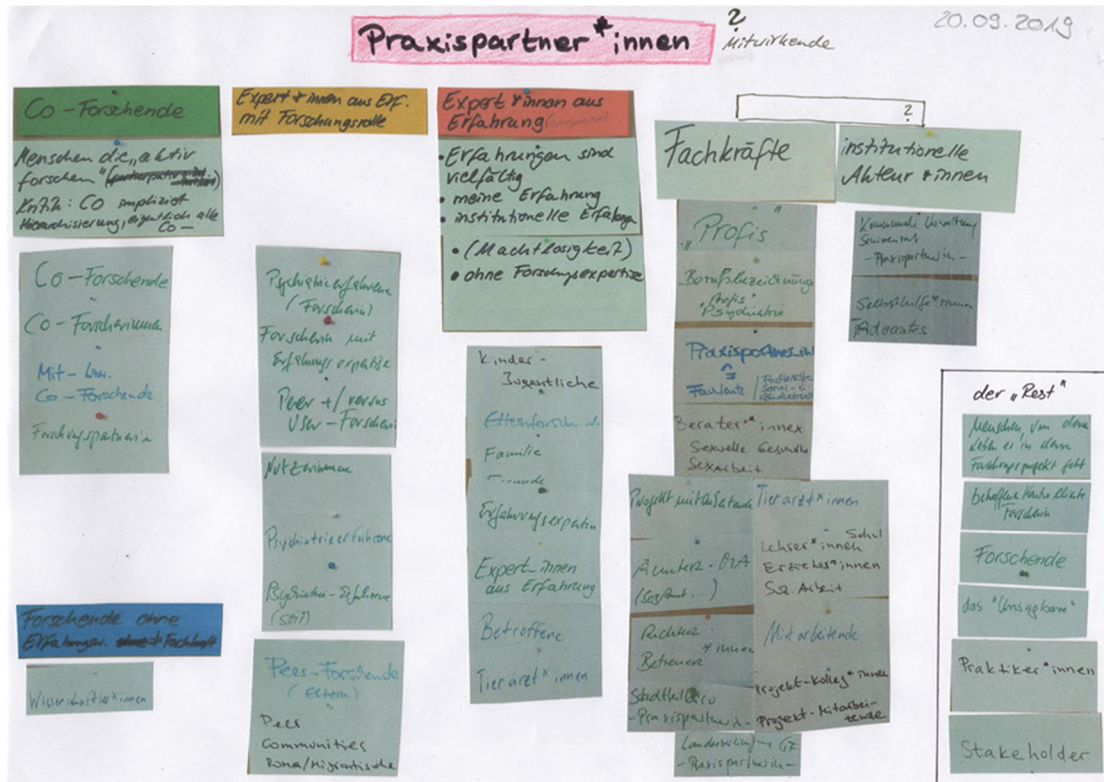 Praxispartner*innen
?
Mitwirkende
20.09.2019
Co-Forschende
Menschen die "aktiv
forschen"
Knzz: CO impliziert
Hierarchisierung, eigentlich alle
Co-
Co-Forschende
Co-Forscherinnen
Mit- bzw.
Co-Forschende
Forschungspartnerin
Forschende ohne
Erfahrungen. Fachkraft
Wissenschaftler*innen
Expert*innen aus Erf.
mit Forschungsrolle
Psychiatrieerfahrene
(Forscherin)
Forscherin mit
Erfahrungsexpertise
Peer +/versus
User-Forscherin
Nutzerinnen
Psychiatrieerfahrene
Psychiatrie-Erfahrene
Peer-Forschende
(Eltern)
Peer
Communities
Roma/Migrantische
Expert*innen aus
Erfahrung
• Erfahrungen sind
vielfältig
• meine Erfahrung
• institutionelle Erfahrungen
• (Machtlosigkeit)
• ohne Forschungsexpertise
Kinder-
Jugentliche
Familie
Erfahrungsexpertin
Expert_innen
aus Erfahrung
Betroffene
Tierarzt*innen
?
Fachkräfte
"Profis"
Berufsbezeichnung
"Profis"
"Psychiatrie"
Praxispartner.in
=
Fachleute / Fachkräfte
Sozial- &
Berater**innen
Sexuelle Gesundheit
Sexarbeit
Projektmitarbeitende
Ämter
Richter
Betreuer
*innen
Stadtteilbüro
-Praxispartnerin-
-Praxispartnerin-
Tierarzt*innen
Schul
Lehrer*innen
Erzieher*innen
Soz. Arbeit
Mitarbeitende
Projekt-Kolleg*innen
Projekt-Mitarbei-
tende
institutionelle
Akteur*innen
Kommunale Verwaltung
-Praxispartnerin-
Selbsthilfe*innen
Advocates
der "Rest"
Menschen, um deren
Leben es in dem
Forschungsprojekt geht
betroffene kontrollierte
Forscherin
Forschende
das "Unsagbare"
Praktiker*innen
Stakeholder